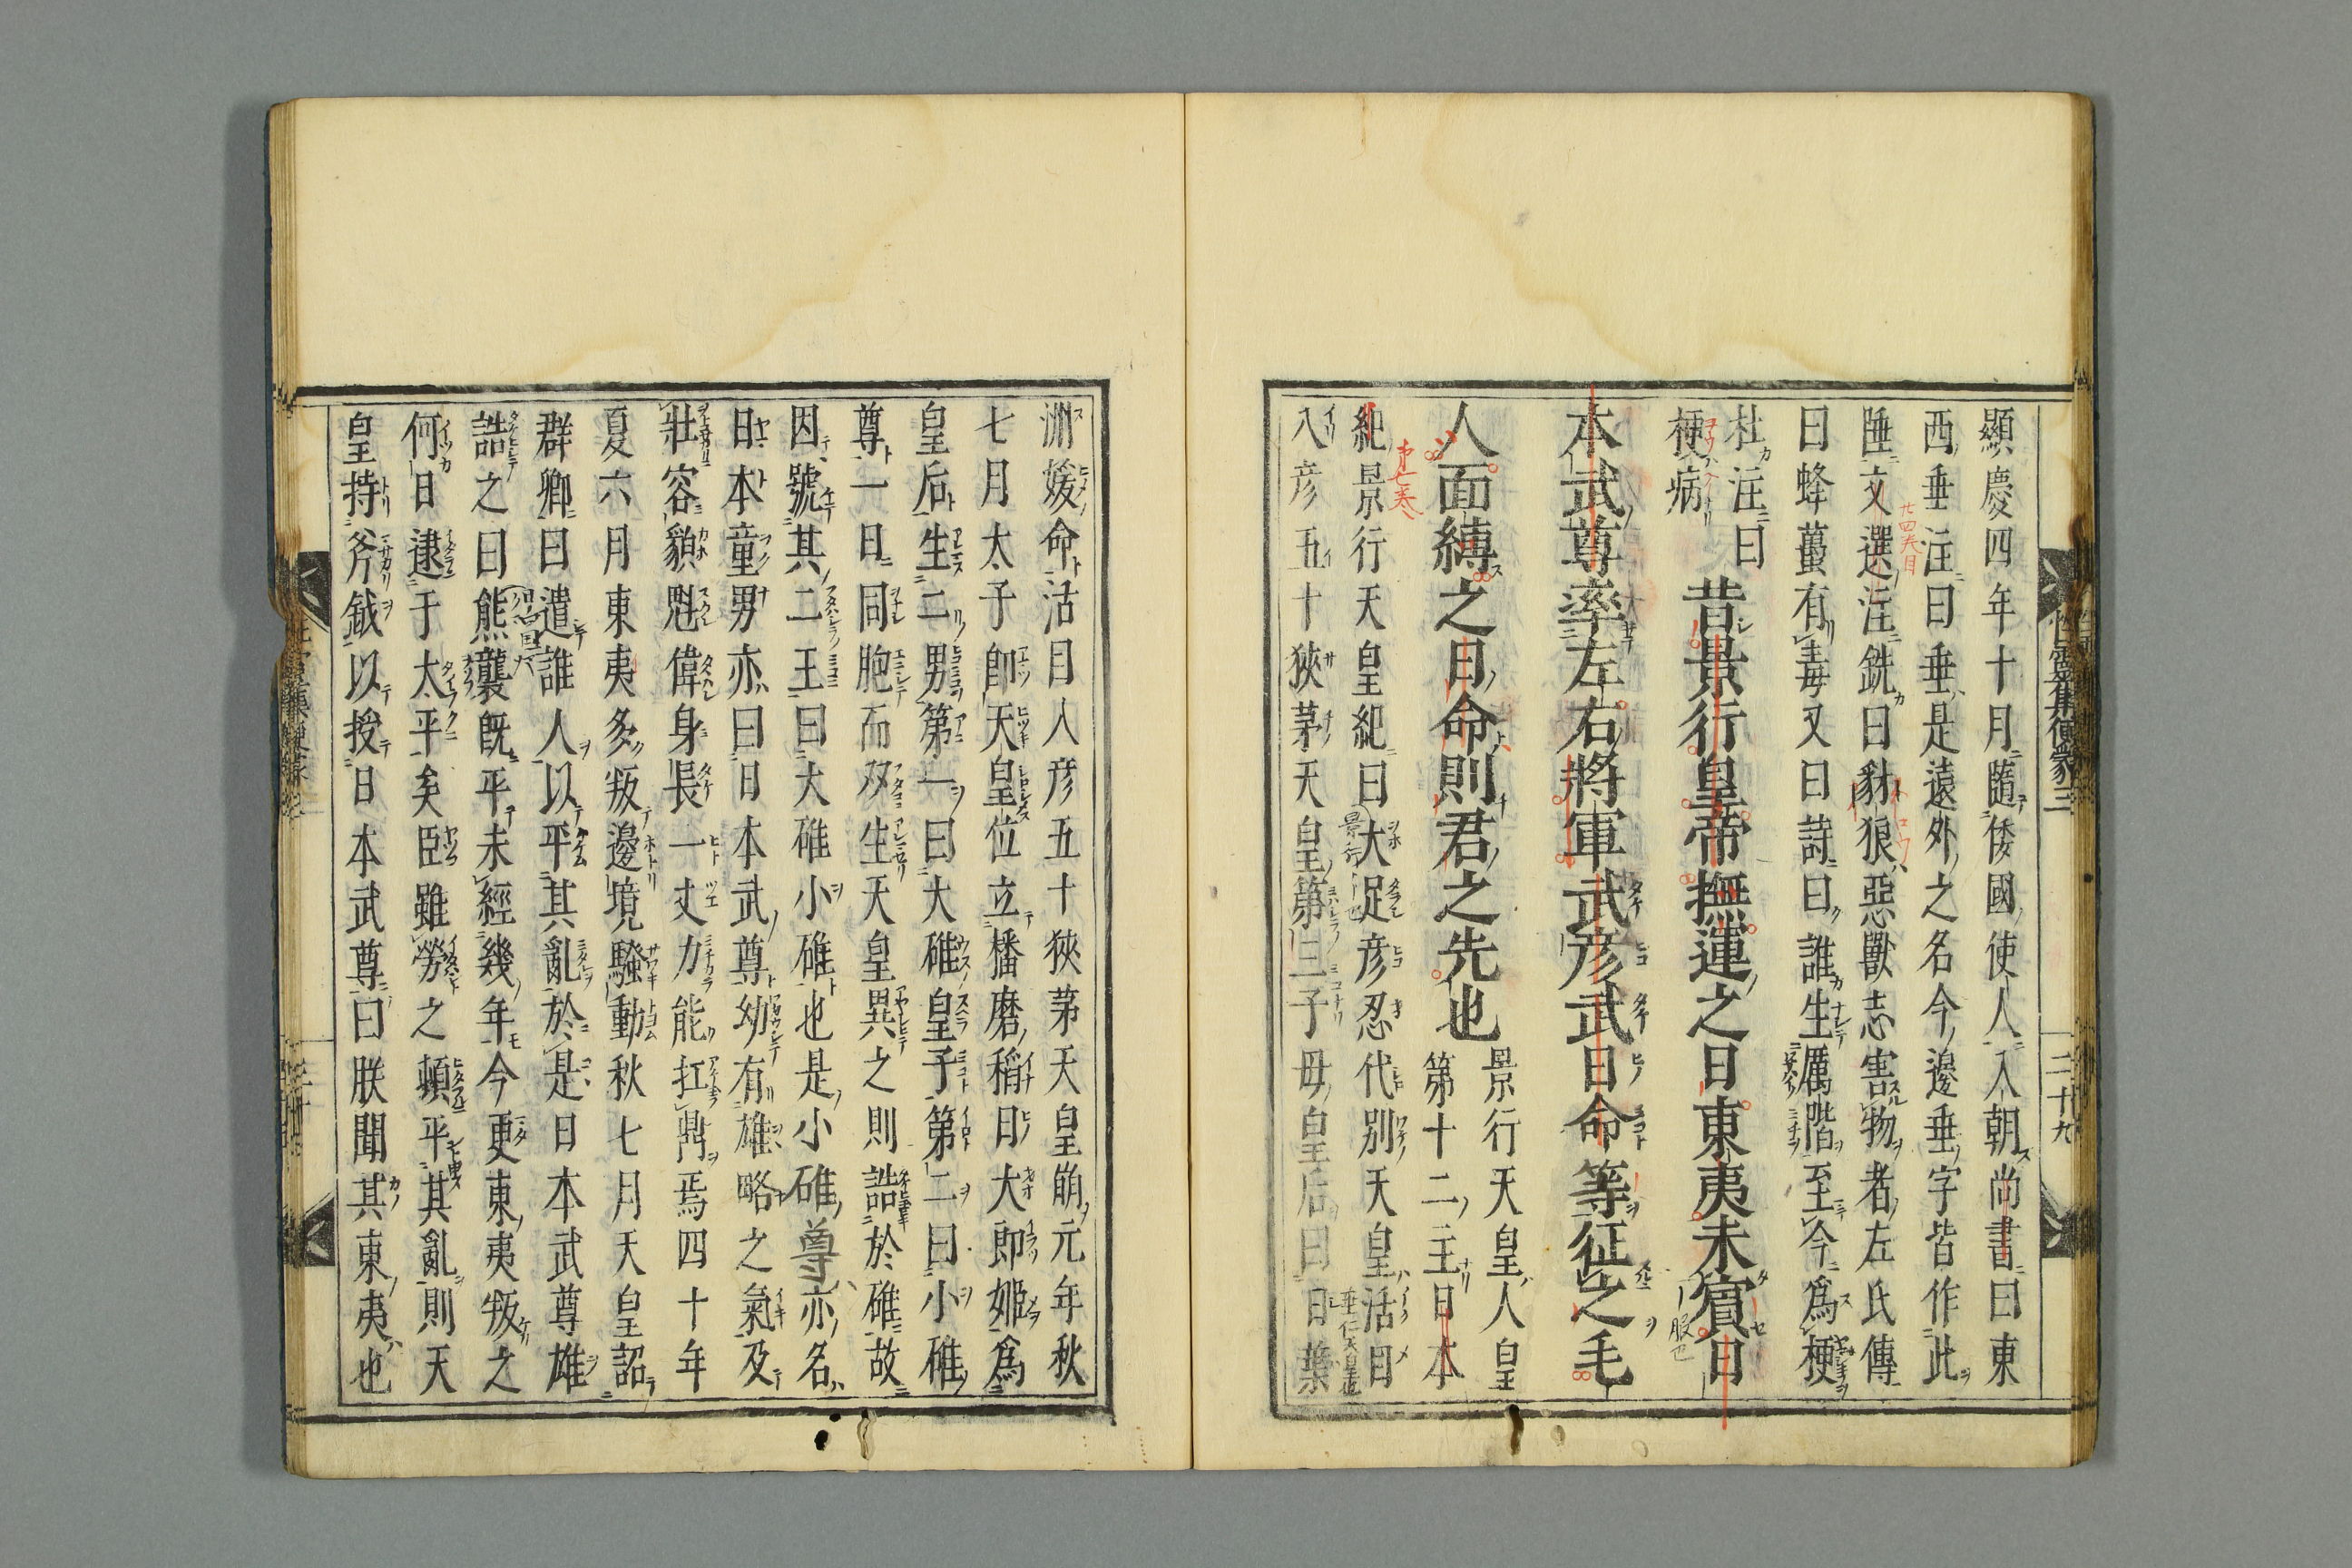 顯慶四年十月隨倭國使人入朝尚書曰東
西垂注曰垂是遠外之名今邊垂字皆作此
陲文選注銑曰豺狼惡獸志害物者左氏傳
曰蜂蠆有毒又曰詩曰誰生厲階至今爲梗
杜注曰
梗病
昔景行皇帝撫運之日東夷未賓日
本武尊率左右將軍武彦武日命等征之毛
人面縛之日命則君之先也
景行天皇人皇
第十二主日本
紀景行天皇紀曰大足彦忍代別天皇活目
入彦五十狹茅天皇第三子母皇后曰日葉
性霊集便蒙三
二十九
洲媛命活目入彦五十狹茅天皇崩元年秋
七月太子即天皇位立播磨稻日大郎姬爲
皇后后生二男第一曰大碓皇子第二曰小碓
尊一日同胞而双生天皇異之則誥於碓故
因號其二王曰大碓小碓也是小碓尊亦名
日本童男亦曰日本武尊幼有雄略之氣及
壯容貌魁偉身長一丈力能扛鼎焉四十年
夏六月東夷多叛邊境騷動秋七月天皇詔
群卿曰遣誰人以平其亂於是日本武尊雄
誥之曰熊襲既平未經幾年今更東夷叛之
何日逮于太平矣臣雖勞之頓平其亂則天
皇持斧鉞以授日本武尊曰朕聞其東夷也